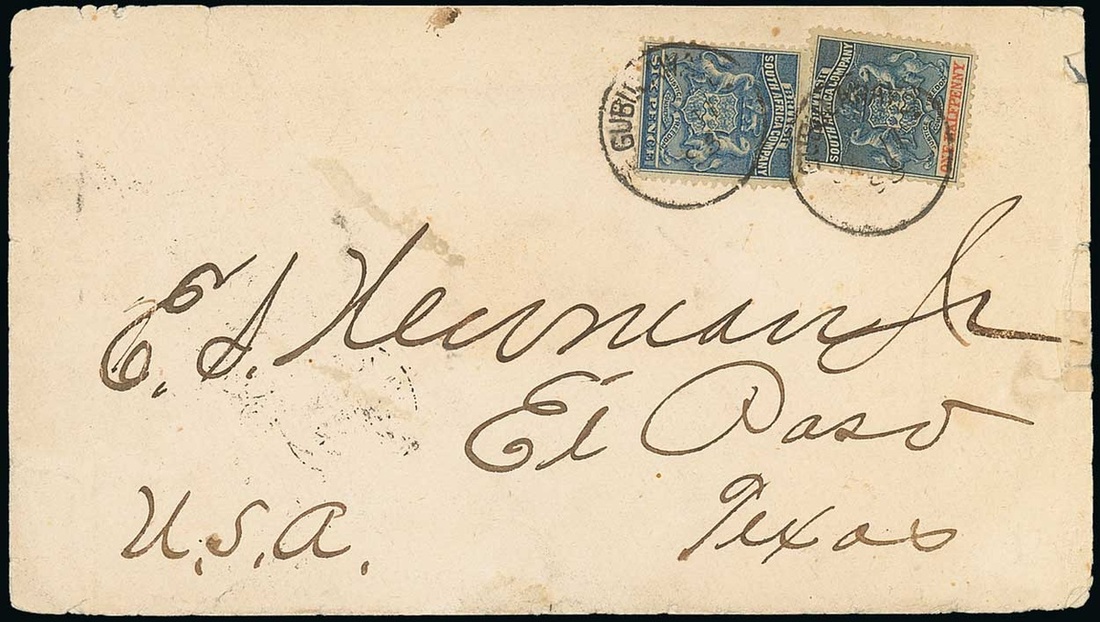 GUBU
SIX PENCE
BRITISH
SOUTH AFRICA COMPANY
BRITISH
SOUTH AFRICA COMPANY
ONE HALFPENNY
E. S. Newman Jr
El Paso
Texas
U.S.A.